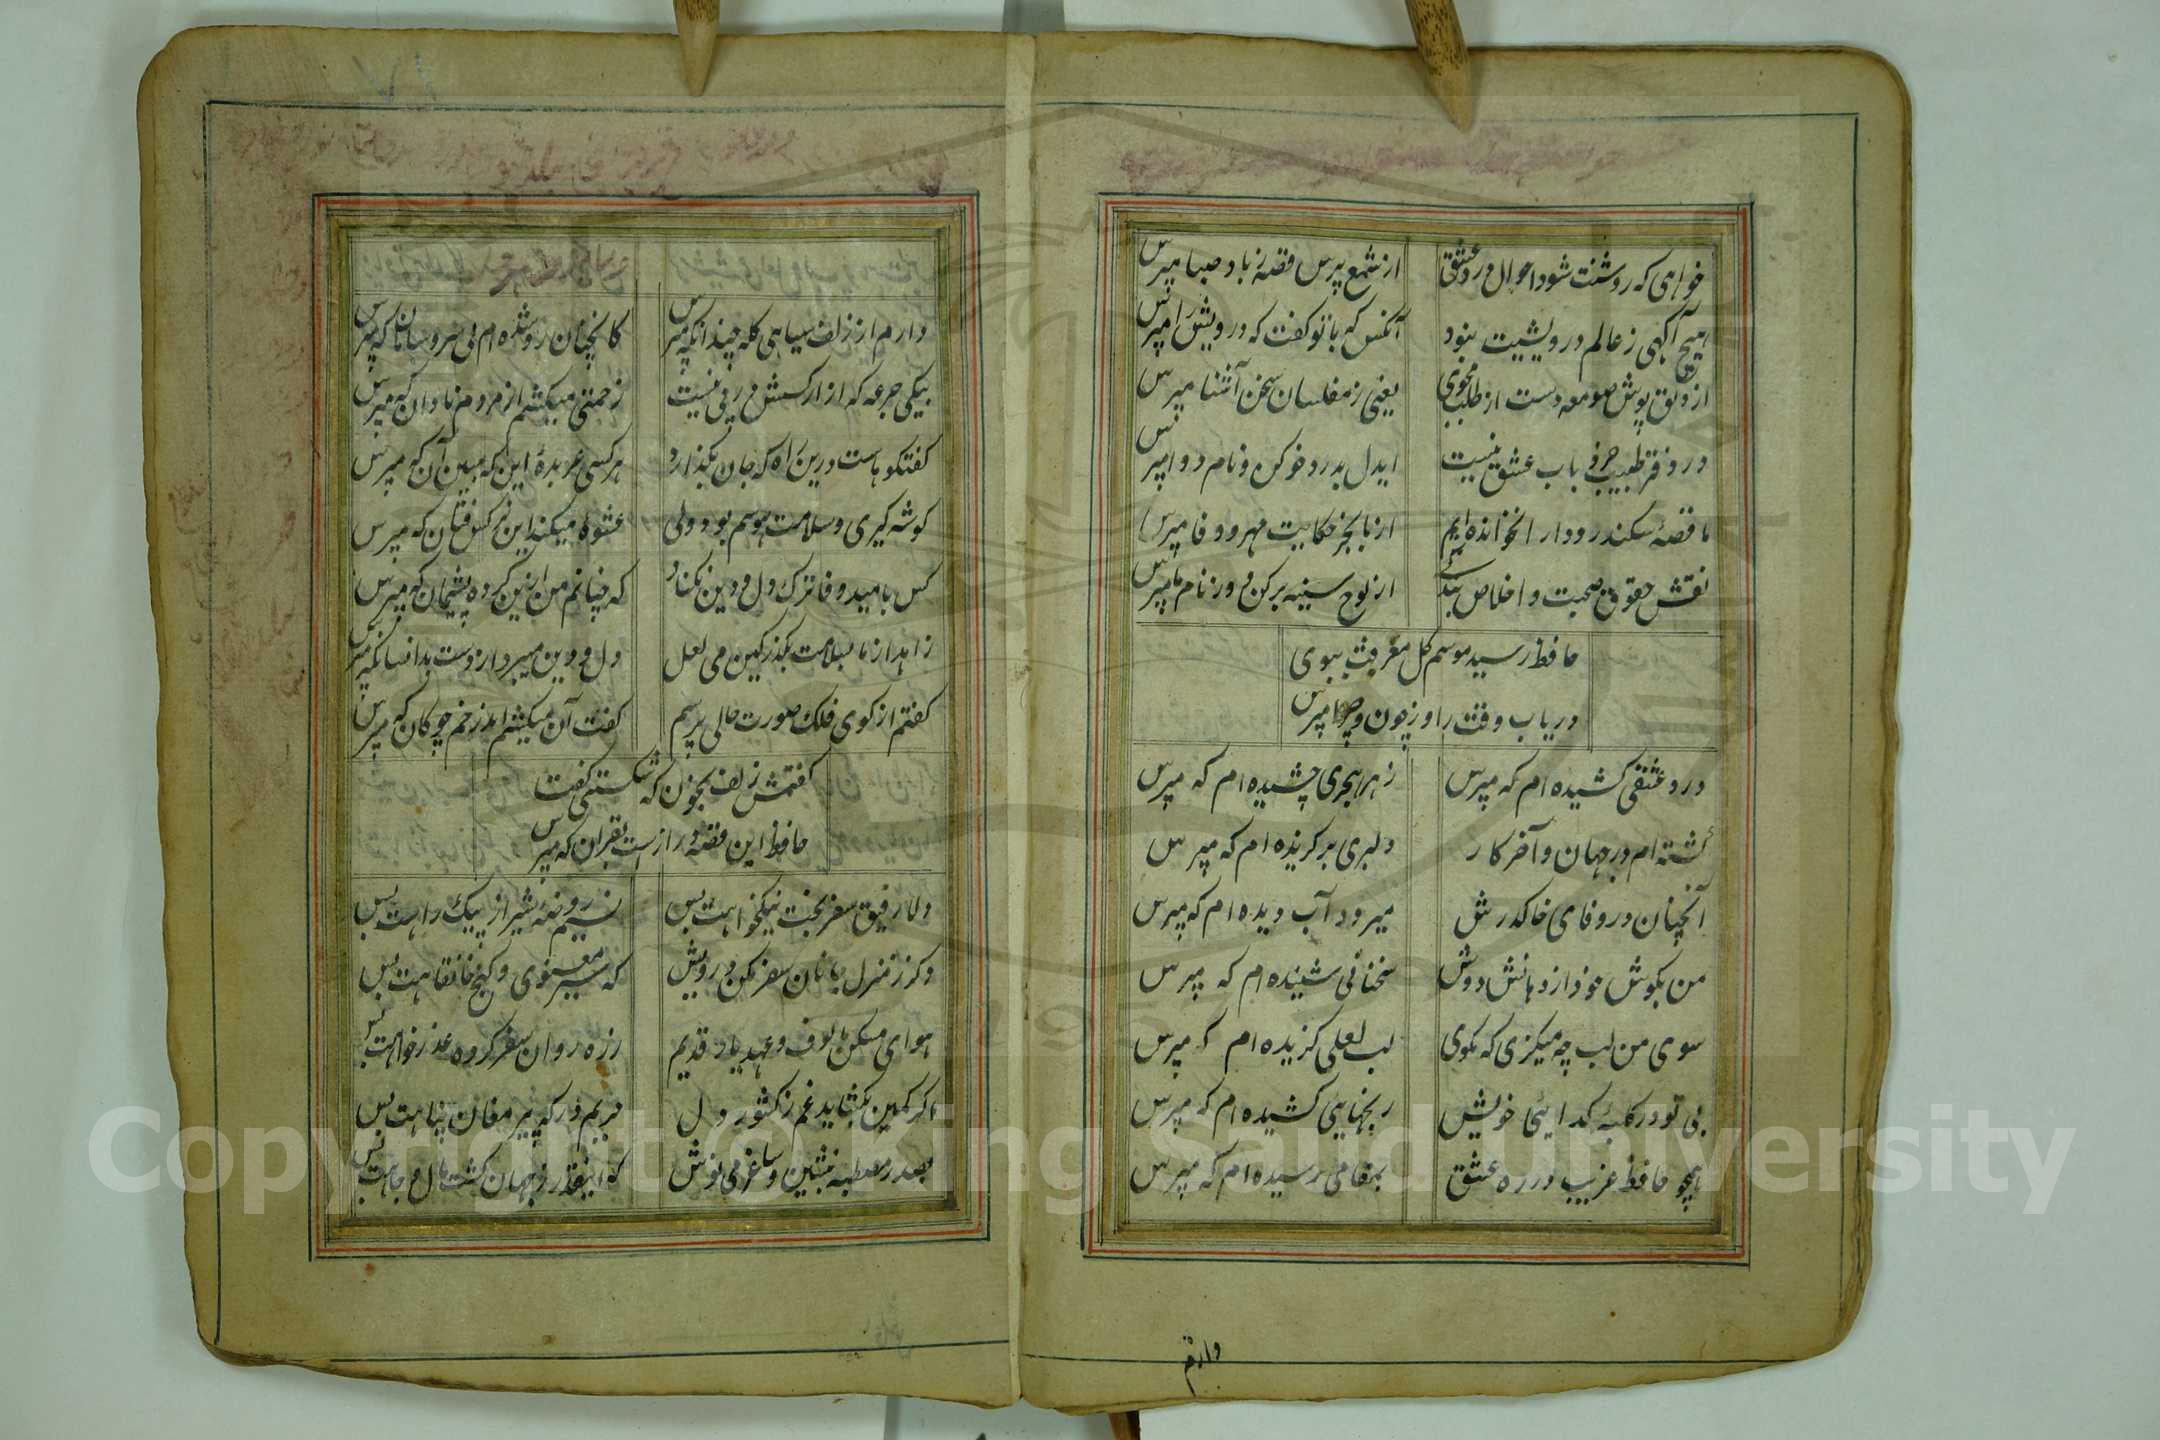 خواهی که روشنت شود احوال درد عشق
از شمع پرس قصه ز باد صبا مپرس
هیچ آگهی ز عالم درویشیت نبود
آنکس که با تو گفت که درویش را مپرس
از دلق پوش صومعه دست از طلب مجوی
یعنی ز مفلسان سخن آشنا مپرس
در دفتر طبیب حرفی باب عشق نیست
ایدل بدرد خو کن و نام دوا مپرس
ما قصهٔ سکندر و دارا نخوانده ایم
از ما بجز حکایت مهر و وفا مپرس
نقش حقوق صحبت و اخلاص بندگی
از لوح سینه بر کن و ور نام ما مپرس
حافظ رسید موسم گل معرفت مبوی
دریاب وقت را و ز چون و چرا مپرس
درد عشقی کشیده ام که مپرس
زهر هجری چشیده ام که مپرس
گشته ام در جهان و آخر کار
دلبری بر گزیده ام که مپرس
آنچنان در وفای خاک درش
میرود آب دیده ام که مپرس
من بگوش خود از دهانش دوش
سخنانی شنیده ام که مپرس
سوی من لب چه میگزی که مگوی
لب لعلی گزیده ام که مپرس
بی تو در کلبهٔ گدایی خویش
رنجهایی کشیده ام که مپرس
همچو حافظ غریب در ره عشق
بمقامی رسیده ام که مپرس
دارم
دارم از زلف سیاهی گله چندانکه مپرس
کانچنان زو شده ام بی سر و سامان که مپرس
بیکی جرعه که آزار کسش در پی نیست
زحمتی میکشم از مردم نادان که مپرس
گفتگوهاست درین راه که جان بگدازد
هر کسی عربدهٔ این که مبین آن که مپرس
گوشه گیری و سلامت هوسم بود ولی
عشوهٔ میکند این نرگس فتان که مپرس
کس بامید وفا ترک دل و دین نکناد
که چنانم من ازین کرده پشیمان که مپرس
زاهد از ما بسلامت بگذر کین می لعل
دل و دین میبرد از دست بدانسانکه مپرس
گفتم از گوی فلک صورت حالی پرسم
گفت آن میکشم اندر خم چوگان که مپرس
گفتمش زلف بخون که شکستی گفت
حافظ این قصه دراز است بقرآن که مپرس
دلا رفیق سفر بخت نیکخواهت بس
نسیم روضهٔ شیراز پیک راهت بس
دگر ز منزل جانان سفر مکن درویش
که سیر معنوی و کنج خانقاهت بس
هوای مسکن مالوف و عهد یار قدیم
ز ره روان سفر کرده عذر خواهت بس
اگر کمین بگشاید غم ز کشور دل
حریم درگه پیر مغان پناهت بس
بصدر مصطبه بنشین و ساغر می نوش
که اینقدر ز جهان کسب مال و جاهت بس
Copyright © King Saud University